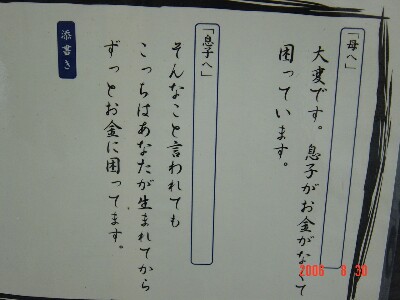 「母へ」
大変です。息子がお金がなくて
困っています。
「息子へ」
そんなこと言われても
こっちはあなたが生まれてから
ずっとお金に困ってます。
添書き
2006 8 30